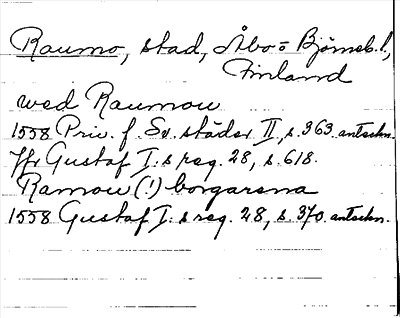 Raumo, stad, Åbo= Björneb. l.,
Finland
wed Raumou
1558 Priv. f. Sv. städer II, s. 363. anteckn.
Jfr Gustaf I:s reg. 28, s. 618.
Ramou (!) borgarena
1558 Gustaf I:s reg. 28, s. 370. anteckn.